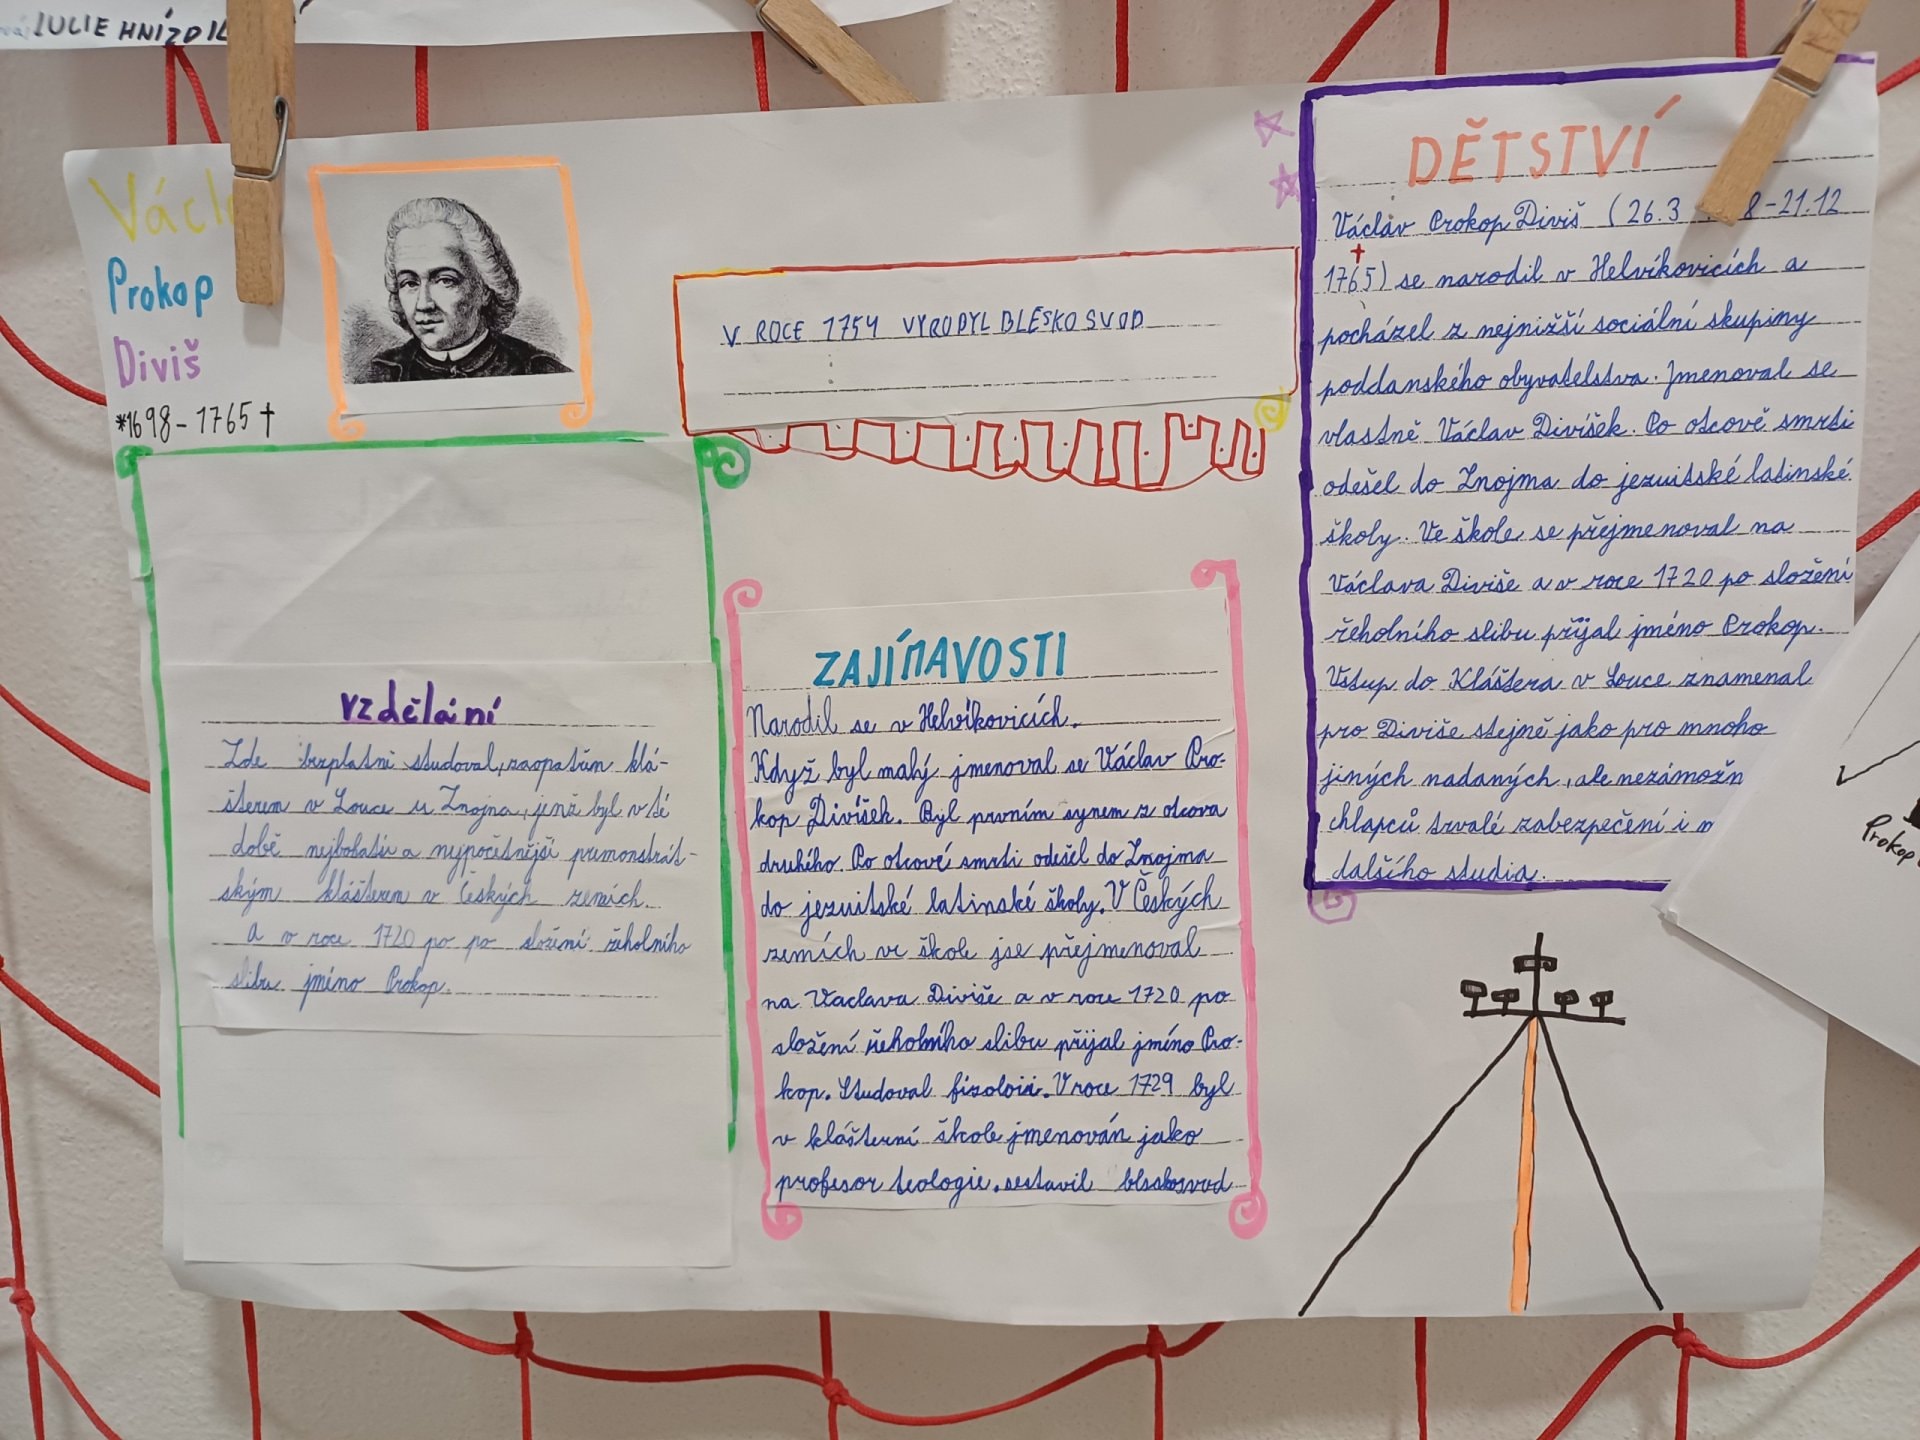 JULIE HNÍZDIL
Václ
Prokop
Diviš
*1698-1765†
V ROCE 1754 VYROPYL BLESKOSVOD
DĚTSTVÍ
Václav Prokop Diviš (26.3 8-21.12
†
1765) se narodil v Helvíkovicích a
pocházel z nejnižší sociální skupiny
poddanského obyvatelstva. Jmenoval se
vlastně Václav Divíšek. Po otcově smrti
odešel do Znojma do jezuitské latinské
školy. Ve škole se přejmenoval na
Václava Diviše a v roce 1720 po složení
řeholního slibu přijal jméno Prokop.
Vstup do Kláštera v Louce znamenal
pro Diviše stejně jako pro mnoho
jiných nadaných, ale nezámožn
chlapců trvalé zabezpečení i m
dalšího studia.
vzdělání
Zde bezplatně studoval, zaopatřen klá-
šterem v Louce u Znojma, jenž byl v té
době nejbohatší a nejpočetnější premonstrát-
ským klášterem v Českých zemích.
A v roce 1720 po po složení řeholního
slibu jméno Prokop.
ZAJÍMAVOSTI
Narodil se v Helvíkovicích.
Když byl malý jmenoval se Václav Pro-
kop Divíšek. Byl prvním synem z otcova
druhého. Po otcově smrti odešel do Znojma
do jezuitské latinské školy. V Českých
zemích ve škole jse přejmenoval
na Vaclava Diviše a v roce 1720 po
složení řeholního slibu přijal jméno Pro-
kop. Studoval fizoloii. V roce 1729 byl
v klášterní škole jmenován jako
profesor teologie. sestavil bleskosvod
Prokop